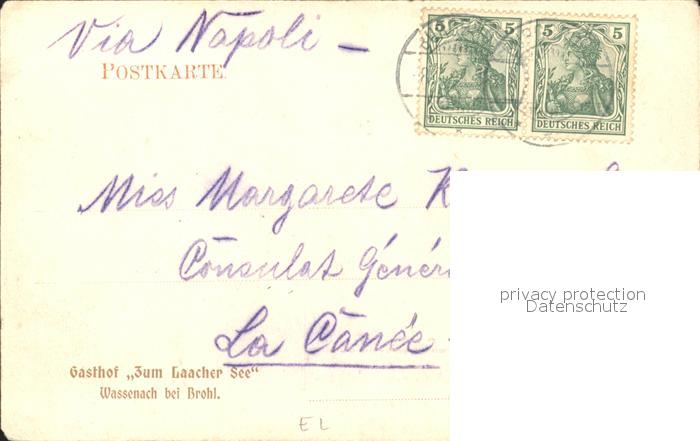 Via Napoli –
POSTKARTE
5 5
DEUTSCHES REICH
5 5
DEUTSCHES REICH
Miss Margarete
Consulat Génér
La Canée
privacy protection
Datenschutz
Gasthof „Zum Laacher See“
Wassenach bei Brohl.
EL